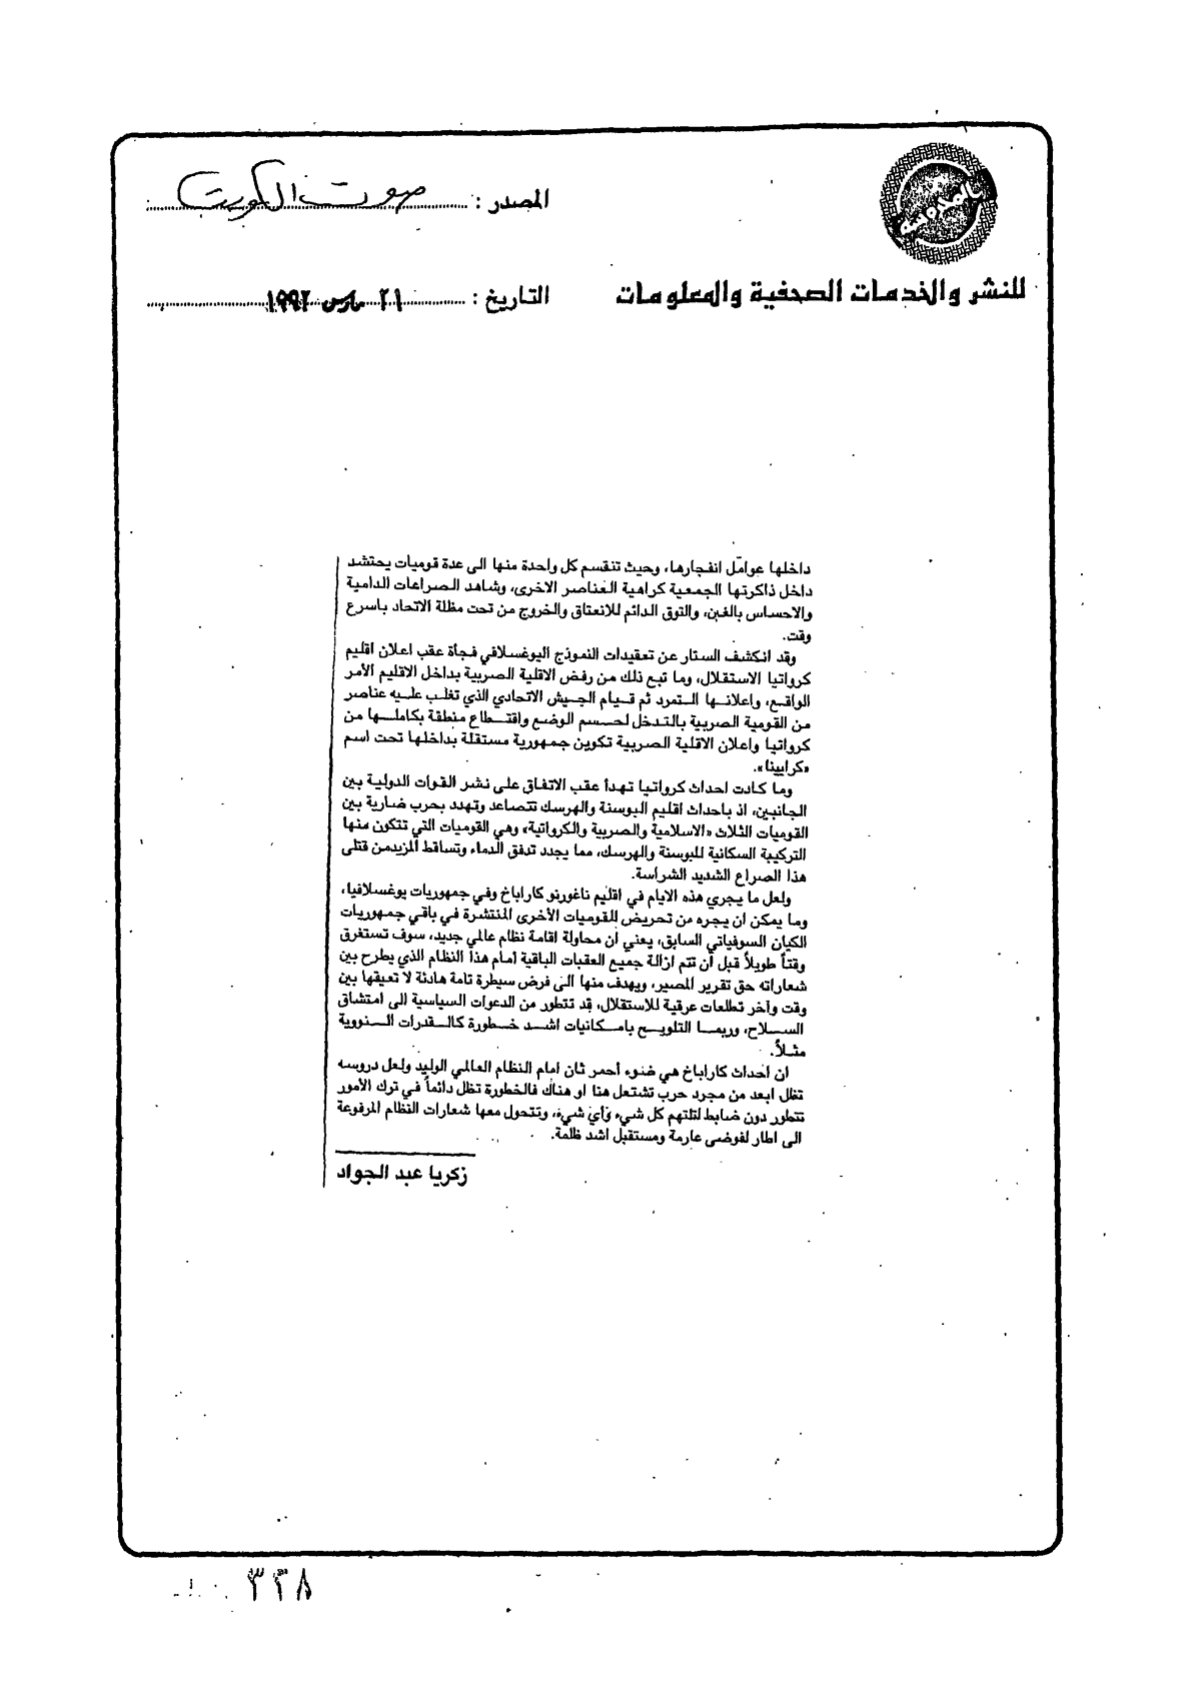 المصدر : صوت الكويت
للنشر والخدمات الصحفية والمعلومات
التاريخ : ٢١ مارس ١٩٩٢
داخلها عوامل انفجارها، وحيث تنقسم كل واحدة منها الى عدة قوميات يحتشد
داخل ذاكرتها الجمعية كراهية العناصر الاخرى، وشاهد الصراعات الدامية
والاحساس بالغبن، والتوق الدائم للانعتاق والخروج من تحت مظلة الاتحاد باسرع
وقت.
وقد انكشف الستار عن تعقيدات النموذج اليوغسلافي فجأة عقب اعلان اقليم
كرواتيا الاستقلال، وما تبع ذلك من رفض الاقلية الصربية بداخل الاقليم الأمر
الواقع، واعلانها التمرد ثم قيام الجيش الاتحادي الذي تغلب عليه عناصر
من القومية الصربية بالتدخل لحسم الوضع واقتطاع منطقة بكاملها من
كرواتيا واعلان الاقلية الصربية تكوين جمهورية مستقلة بداخلها تحت اسم
«كرايينا».
وما كادت احداث كرواتيا تهدأ عقب الاتفاق على نشر القوات الدولية بين
الجانبين، اذ باحداث اقليم البوسنة والهرسك تتصاعد وتهدد بحرب ضارية بين
القوميات الثلاث «الاسلامية والصربية والكرواتية» وهي القوميات التي تتكون منها
التركيبة السكانية للبوسنة والهرسك، مما يجدد تدفق الدماء وتساقط المزيدمن قتلى
هذا الصراع الشديد الشراسة.
ولعل ما يجري هذه الايام في اقليم ناغورنو كاراباخ وفي جمهوريات يوغسلافيا،
وما يمكن ان يجره من تحريض للقوميات الأخرى المنتشرة في باقي جمهوريات
الكيان السوفياتي السابق، يعني ان محاولة اقامة نظام عالمي جديد، سوف تستغرق
وقتاً طويلاً قبل أن تتم ازالة جميع العقبات الباقية أمام هذا النظام الذي يطرح بين
شعاراته حق تقرير المصير، ويهدف منها الى فرض سيطرة تامة هادئة لا تعيقها بين
وقت وآخر تطلعات عرقية للاستقلال، قد تتطور من الدعوات السياسية الى امتشاق
السلاح، وربما التلويح بامكانيات اشد خطورة كالقدرات النووية
مثلاً.
ان احداث كاراباخ هي ضوء أحمر ثان امام النظام العالمي الوليد ولعل دروسه
تظل ابعد من مجرد حرب تشتعل هنا او هناك فالخطورة تظل دائماً في ترك الأمور
تتطور دون ضابط لتلتهم كل شيء وأي شيء، وتتحول معها شعارات النظام المرفوعة
الى اطار لفوضى عارمة ومستقبل اشد ظلمة.
زكريا عبد الجواد
٣٢٨